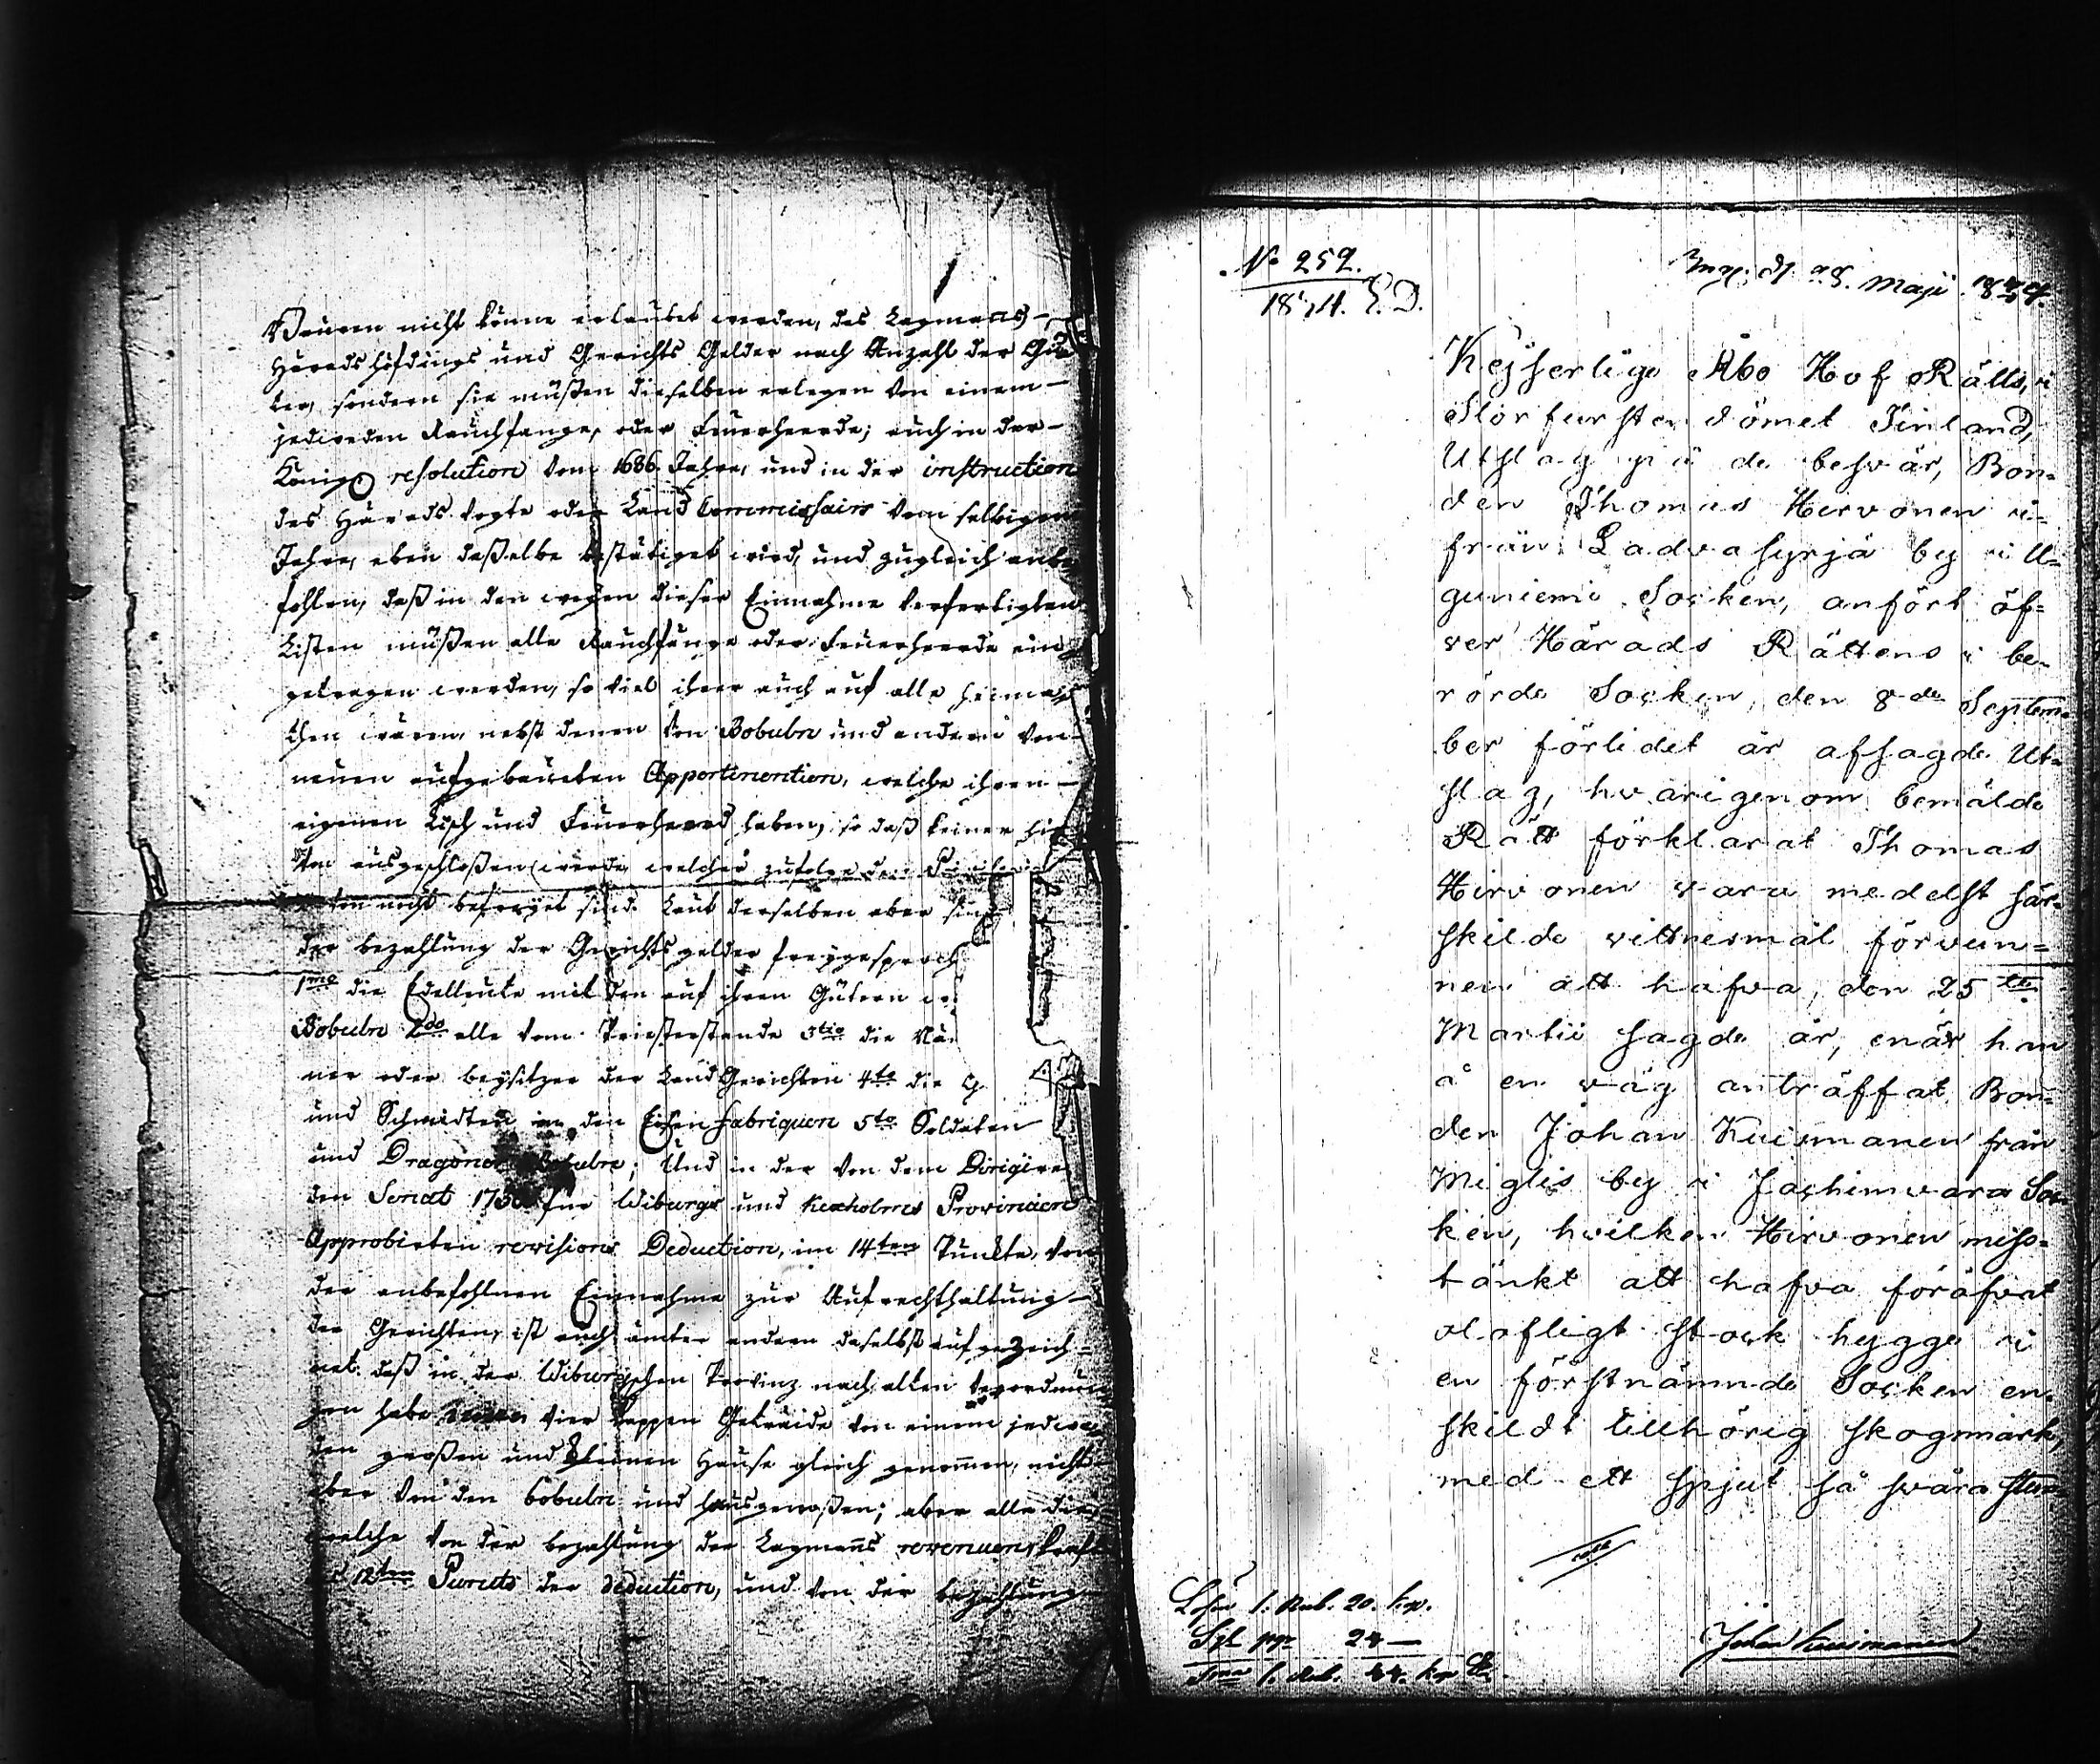 Bauren nicht könne erlaubet werden, des Lagmanns-
Häradshöfdings und Gerichts Gelder nach Anzahl der Gü
ter, sondern sie müßen dieselben erlegen von einem
jedweden Rauchfange, oder Feuerheerde; auch in der
Königl resolution vom 1686 Jahre, und in der instruction
des Härads vogte oder Land Commissairs vom selbigen
Jahre, eben daßelbe bestätiget wird, und zugleich anbe
fohlen, daß in den wegen dieser Einnahme verfertigten
Listen müßen alle Rauchfänge oder Feuerheerde ein
getragen werden, so viel ihrer auch auf alle Heima
then wären, nebst denen von Bobuln und andern von
neuen aufgebaueten Appertinentien, welche ihren
eigenen Tisch und Feuerheerd haben, so daß keiner hie
von ausgeschloßen werde, welcher zufolge den
nicht befreyet sind. Laut derselben aber sind
der bezahlung der Gerichtsgelder freygesproch
1mo die Edelleute mit den auf ihren Gütern
Bobuln 2do alle vom Priesterstande 3tio die Nä
ner oder beysitzer der Land Gerichten 4to die
und Schmidten in den Eisen fabriquen 5to Soldaten
und Dragoner; Und in der von dem Dirigire
den Senat 17 für Wiburgs und Kexholms Provincien
Approbirten revisions Deduction, im 14ten Punkte, von
der anbefohlnen Einnahme zur Aufrechthaltung
der Gerichten, ist auch unter andern daselbst aufgezeich=
net daß in der Wiburgschen Provinz nach alten verordnun
gen habe vier Kappen Getraide von einem jedwe
den großen und kleinen Hause gleich genommen, nicht
aber von den bobuln und hausgenoßen; aber alle die
welche von der bezahlung der Lagmanns revenuen kraft
12ten Puncts der deduction, und von der bezahlung
No 252.
1814. E. D.
d. 28 Maji 1814.
Kejserlige Åbo Hof Rätts, i
Storfurstendömet Finland,
Utslag på de besvär, Bon=
den Thomas Hirvonen i=
från Ladvasyrjä by i U=
guniemi Socken, anfört öf=
ver Härads Rättens i be=
rörde Socken, den 8de Septem=
ber förlidet år afsagde Ut=
slag, hvarigenom bemälde
Rätt förklarat Thomas
Hirvonen vara medelst sär=
skilde vittnesmål förvun=
nen att hafva, den 25te
Martii sagde år, enär han
å en väg anträffat Bon=
den Johan Kuismanen från
Miglis by i Jachimvara Soc
ken, hvilken Hirvonen miss=
tänkt att hafva föröfvat
olofligt stock hygge i
en förstnämnde Socken en=
skildt tillhörig skogsmark,
med ett spjut så svåra
Lösn 1. Rub. 20. kop.
Sgl ppr 24 —
Sma 1. Rub. 44. kop
Johan Kuismanen